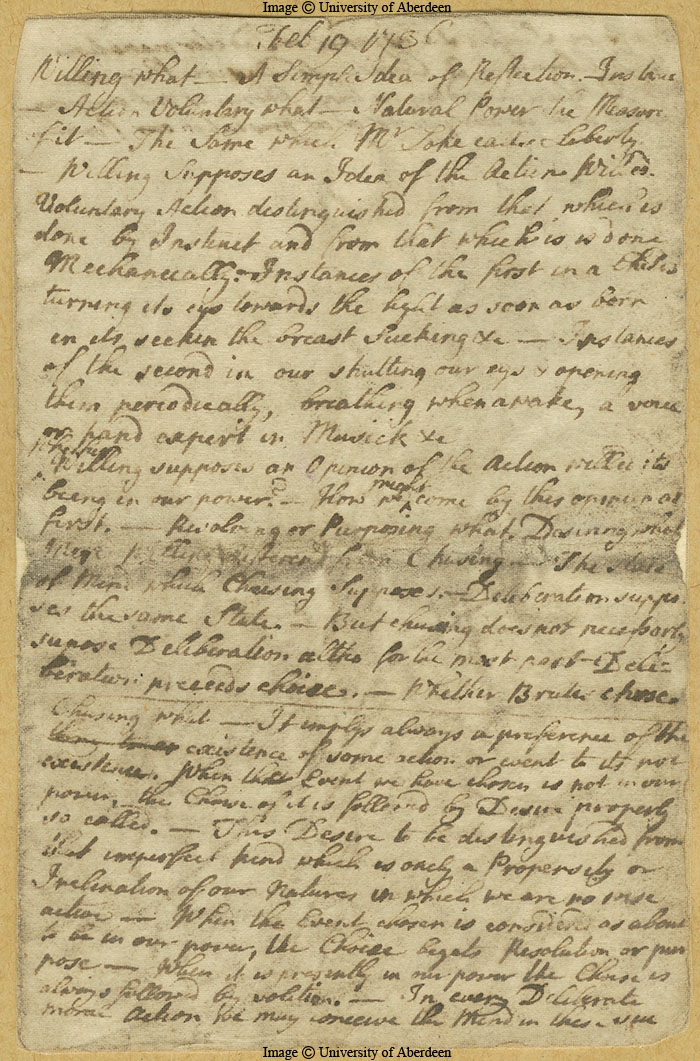 Image © University of Aberdeen
Feb 19 1736
Willing what — A Simple Idea of Reflection. Instance
— Action Voluntary what — Natural Power the Measure
of it — The Same which Mr Loke calls Liberty
— Willing Supposes an Idea of the Action Willed.
Voluntary Action distinguished from that which is
done by Instinct and from that which is is done
Mechanically. Instances of the first in a Child's
turning its eye towards the light as soon as born
in its seekin the breast Sucking &c — Instances
of the second in our shutting our eys & opening
them periodically, breathing when awake, a voice
or hand expert in Musick &c
Willing supposes an Opinion of the Action willed its
being in our power. — How we come by this opinion at
first. — Resolving or Purposing what. Desiring what
Willing different from Chusing — The State
of Mind which Chusing Supposes. — Deliberation suppo
ses the same State. — But chusing does not necessarly
supose Deliberation altho for the most part Deli-
beration preceeds choice. — Whether Brutes chose
Chusing what — It implys always a preference of the
existence of some action or event to its not
existence. When that Event we have chosen is not in our
power, the Choice of it is followed by Desire properly
so called. — This Desire to be distinguished from
that imperfect kind which is only a Propensity or
Inclination of our Natures in which we are no wise
active — When the Event chosen is considered as about
to be in our power, the Choice begets Resolution or pur
pose — When it is presently in our power the Choice is
always followed by volition. — In every Deliberate
moral Action we may conceive the Mind in these
Image © University of Aberdeen